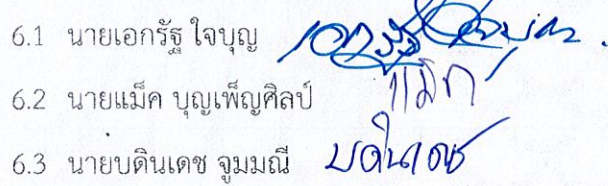 6.1 นายเอกรัฐ ใจบุญ เอกรัฐ ใจบุญ
6.2 นายแม็ค บุญเพ็ญศิลป์ แม็ค
6.3 นายบดินเดช จูมมณี บดินเดช